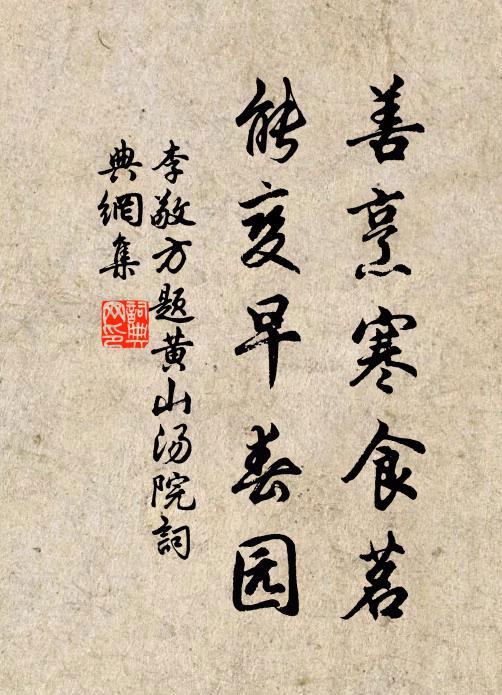 善烹寒食茗
能变早春园
李敬方题黄山汤院詞
典網集
詞典
网印